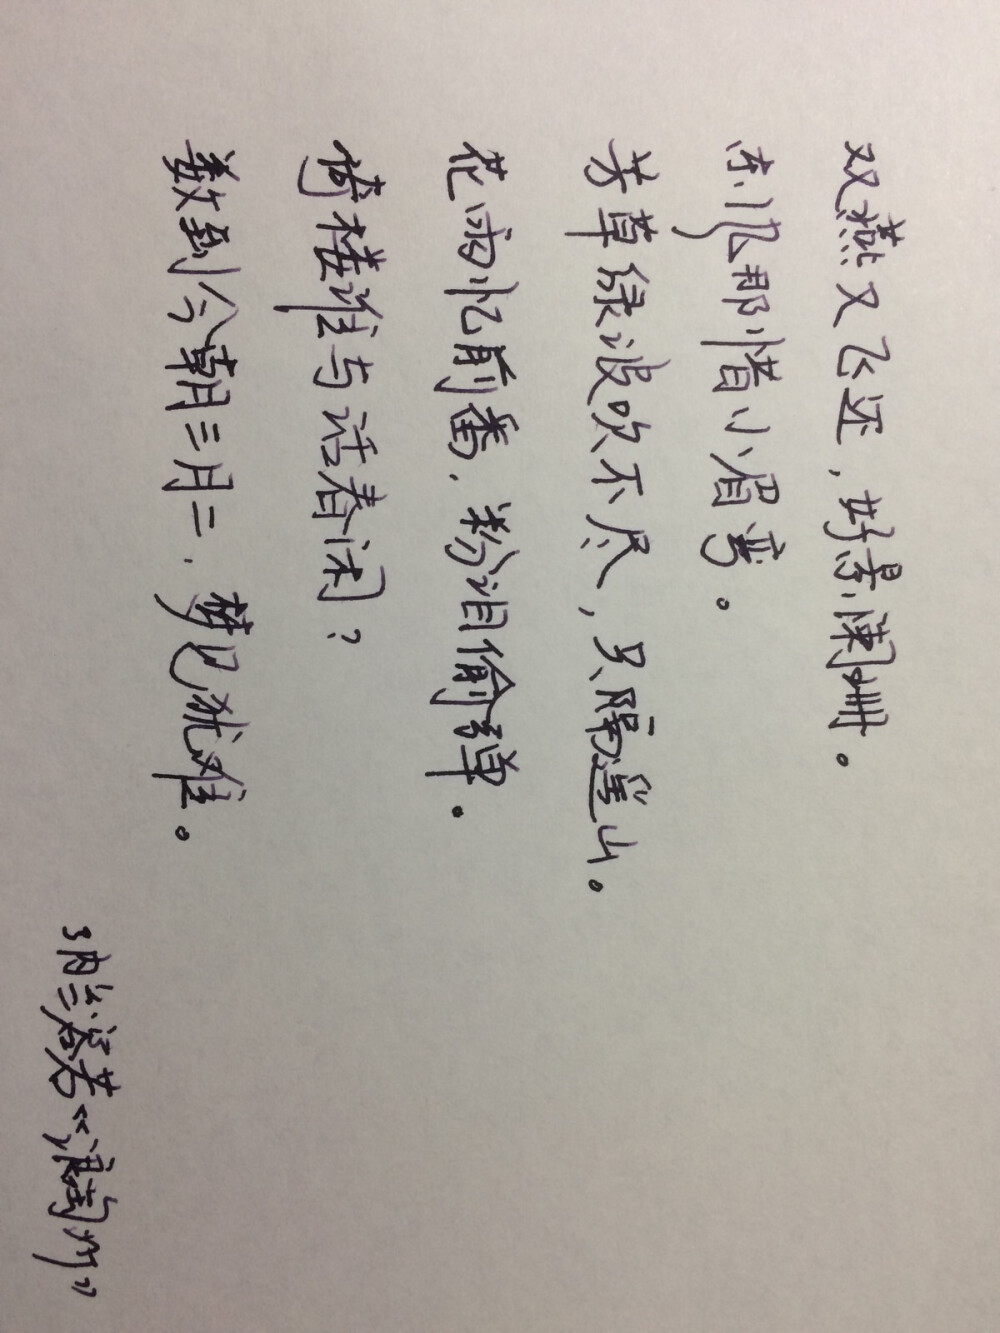 双燕又飞还，好景阑珊。
东风那惜小眉弯。
芳草绿波吹不尽，只隔遥山。
花雨忆前番，粉泪偷弹。
倚楼谁与话春闲？
数到今朝三月二，梦见犹难。
纳兰容若《浪淘沙》